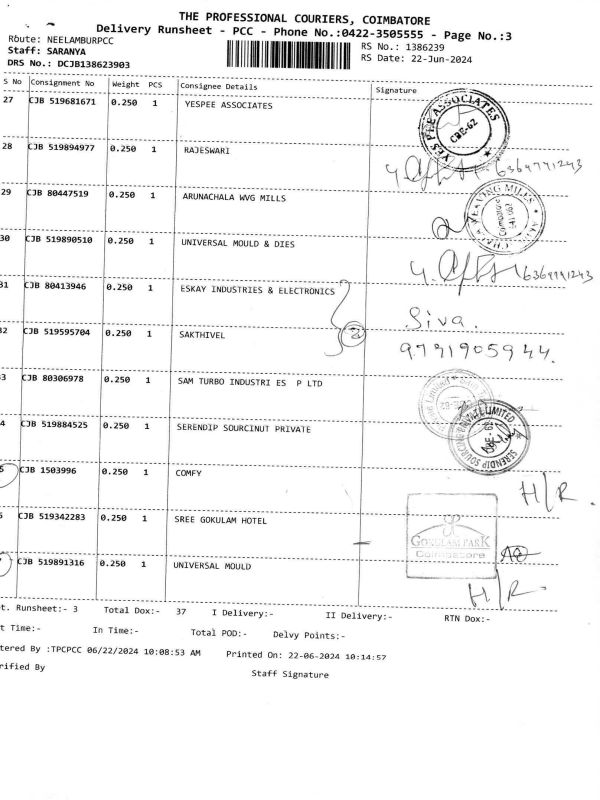 THE PROFESSIONAL COURIERS, COIMBATORE
Delivery Runsheet - PCC - Phone No.:0422-3505555 - Page No.:3
Route: NEELAMBURPCC
RS No.: 1386239
Staff: SARANYA
RS Date: 22-Jun-2024
DRS No.: DCJB138623903
S No Consignment No Weight PCS Consignee Details Signature
27 CJB 519681671 0.250 1 YESPEE ASSOCIATES
YES PEE ASSOCIATES CBE-62
28 CJB 519894977 0.250 1 RAJESWARI
6369771243
29 CJB 80447519 0.250 1 ARUNACHALA WVG MILLS
WEAVING MILLS Coimbatore
30 CJB 519890510 0.250 1 UNIVERSAL MOULD & DIES
31 CJB 80413946 0.250 1 ESKAY INDUSTRIES & ELECTRONICS
Siva.
32 CJB 519595704 0.250 1 SAKTHIVEL
2
9791905944.
3 CJB 80306978 0.250 1 SAM TURBO INDUSTRI ES P LTD
4 CJB 519884525 0.250 1 SERENDIP SOURCINUT PRIVATE
SERENDIP SOURCING PRIVATE LIMITED CBE-62
5 CJB 1503996 0.250 1 COMFY
H/R.
6 CJB 519342283 0.250 1 SREE GOKULAM HOTEL
GOKULAM PARK
Coimbatore
7 CJB 519891316 0.250 1 UNIVERSAL MOULD
H/R.
t. Runsheet:- 3 Total Dox:- 37 I Delivery:- II Delivery:- RTN Dox:-
t Time:- In Time:- Total POD:- Delvy Points:-
tered By :TPCPCC 06/22/2024 10:08:53 AM Printed On: 22-06-2024 10:14:57
rified By Staff Signature